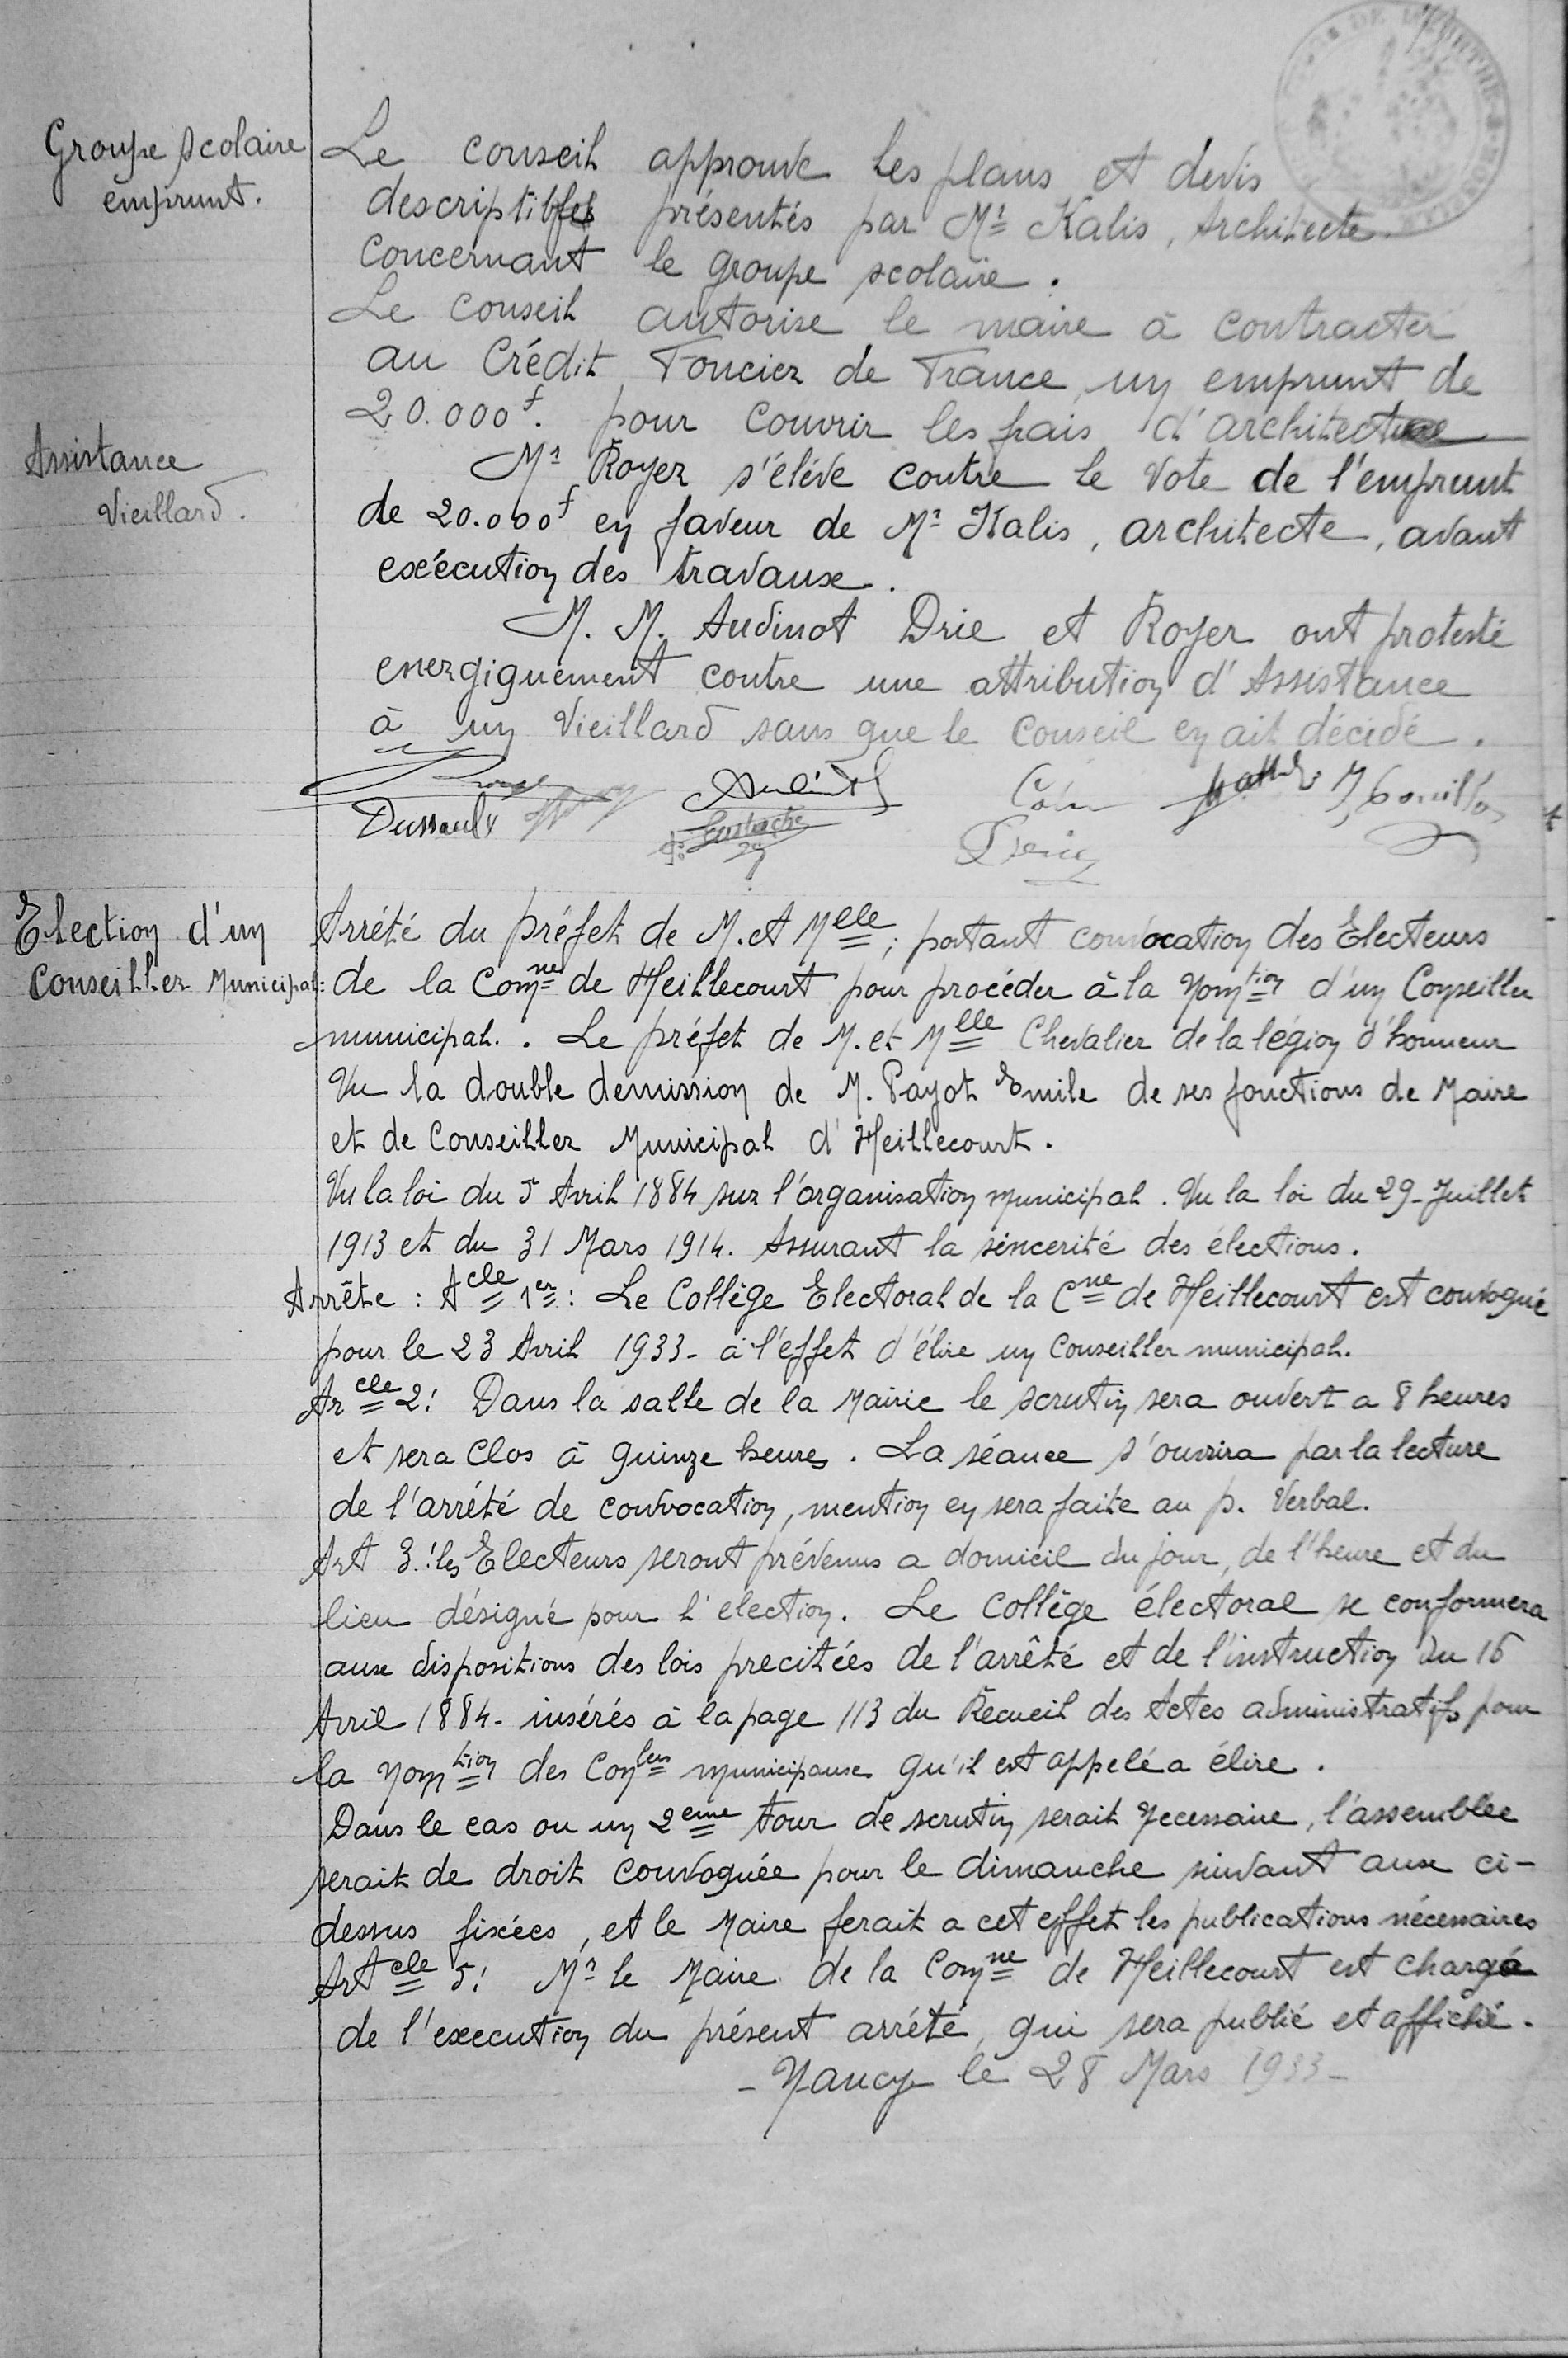 Groupe scolaire
emprunt.
Le conseil approuve les plans et devis
descriptifs présentés par Mr Kalis, Architecte
concernant le groupe scolaire.
Le conseil autorise le maire à contracter
au Crédit Foncier de France, un emprunt de
20.000f. pour couvrir les frais d'architecture
Assistance
Vieillard.
Mr Royer s'éléve contre le vote de l'emprunt
de 20.000f en faveur de Mr Kalis, architecte, avant
exécution des travaux.
M. M. Audinot Drie et Royer ont protesté
energiquement contre une attribution d'Assistance
à un Vieillard sans que le Conseil en ait décidé.
Dussaulx
Election d'un
Conseiller Municipal:
Arrété du préfet de M. et Melle; portant convocation des Electeurs
de la Comne de Heillecourt pour procéder à la Nomtion d'un Conseiller
municipal. . Le préfet de M. et Melle Chevalier de la légion d'honneur
Vu la double demission de M. Payot Emile de ses fonctions de Maire
et de Conseiller Municipal d'Heillecourt.
Vu la loi du 5 Avril 1884 sur l'organisation municipal. Vu la loi du 29-Juillet
1913 et du 31 Mars 1914. Assurant la sincerité des élections.
Arrête : Acle 1er: Le Collège Electoral de la Cne de Heillecourt est convoqué
pour le 23 Avril 1933- à l'effet d'élire un Conseiller municipal.
Arcle 2: Dans la salle de la Mairie le scrutin sera ouvert a 8 heures
et sera Clos à quinze heures. La séance s'ouvrira par la lecture
de l'arrété de convocation, mention en sera faite au p. Verbal.
Art 3: les Electeurs seront prévenus a domicil du jour, de l'heure et du
lieu désigné pour l'election. Le Collège électoral se conformera
aux dispositions des lois precitées de l'arrêté et de l'instruction du 16
Avril 1884- insérés à la page 113 du Recueil des Actes administratifs pour
la Nomtion des Conlers municipaux qu'il est appelé a élire.
Dans le cas ou un 2eme tour de scrutin serait necessaire, l'assemblée
serait de droit convoquée pour le dimanche suivant aux ci-
dessus fixées, et le Maire ferait a cet effet les publications nécessaires
Artcle 5: Mr le Maire de la Comne de Heillecourt est chargé
de l'execution du présent arrété, qui sera publié et affiché.
- Nancy le 28 Mars 1933-